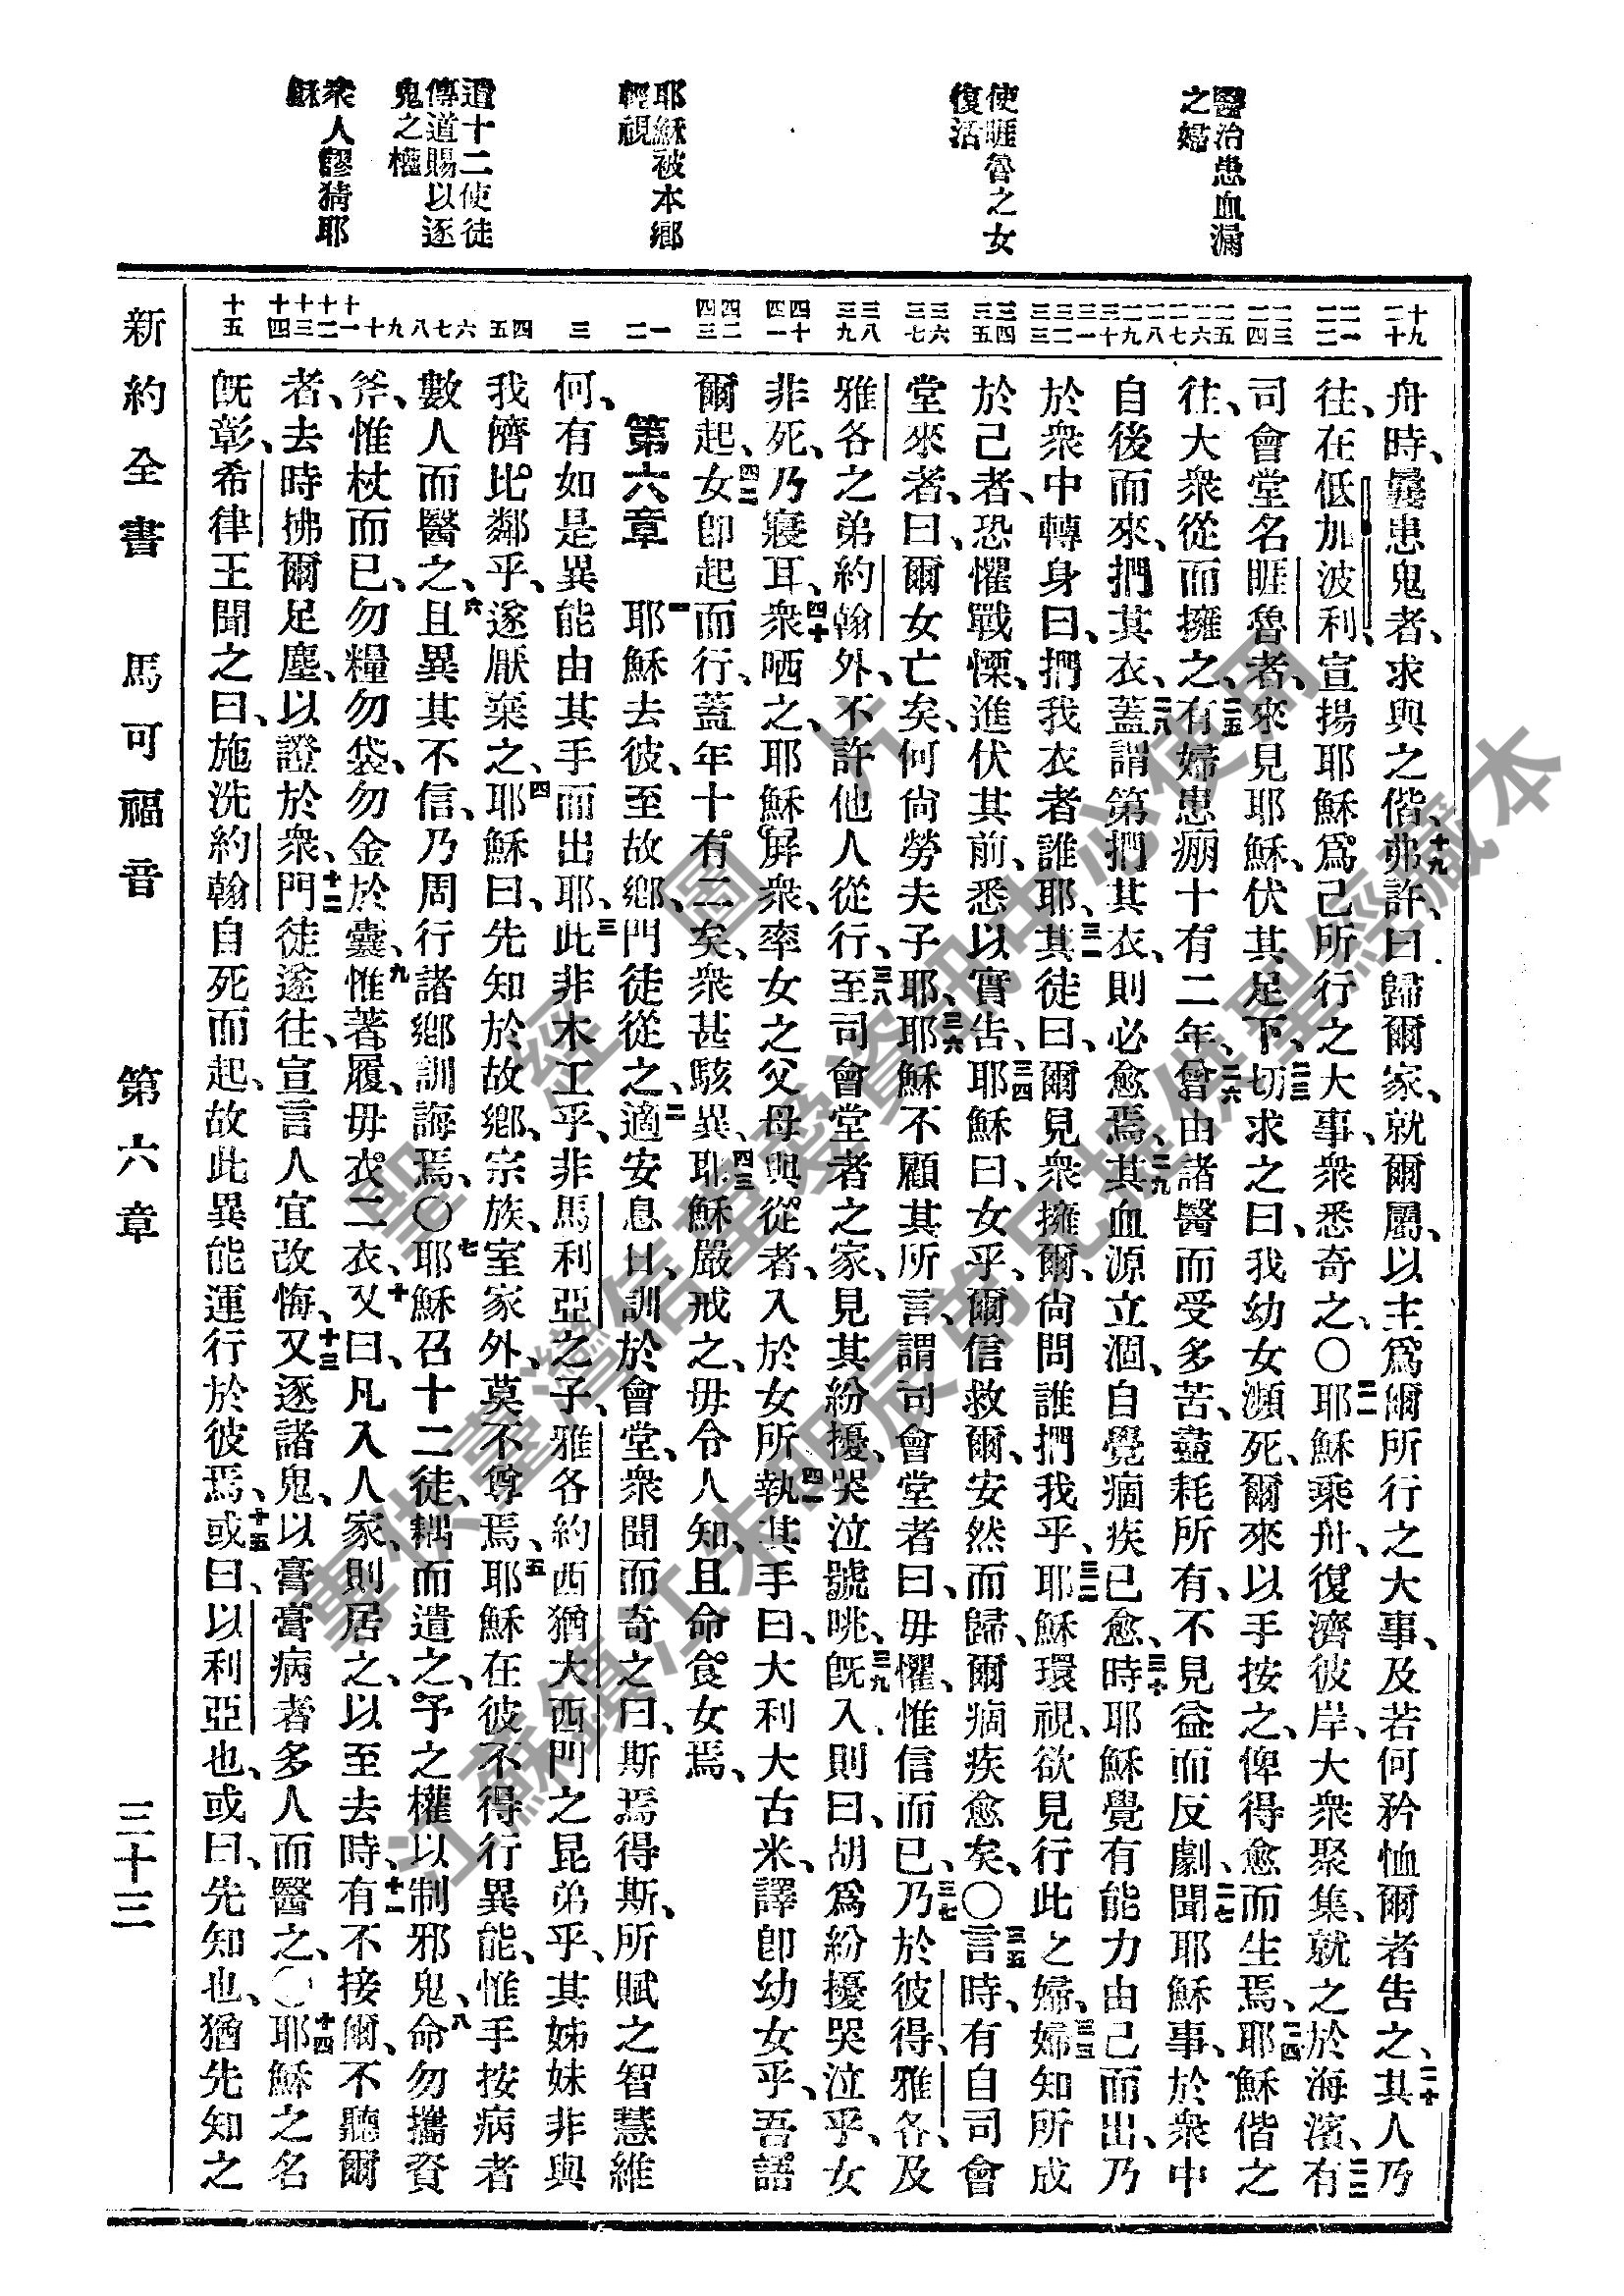 醫治患血漏
之婦
使睚魯之女
復活
耶穌被本鄉
輕視
遣十二使徒
傳道賜以逐
鬼之權
衆人謬猜耶
穌
十九 二十
二一 二二
二三 二四
二五 二六 二七
二八 二九 三十
三一 三二 三三
三四 三五
三六 三七
三八 三九
四十 四一
四二 四三
一 二
三
四 五
六 七 八
九 十
十一 十二
十三 十四
十五
舟時、曩患鬼者、求與之偕、十九弗許、曰歸爾家、就爾屬、以主爲爾所行之大事、及若何矜恤爾者告之、二十其人乃
往、在低加波利、宣揚耶穌爲己所行之大事、衆悉奇之、〇二一耶穌乘舟、復濟彼岸、大衆聚集、就之於海濱、二二有
司會堂名睚魯者、來見耶穌、伏其足下、二三切求之曰、我幼女瀕死、爾來以手按之、俾得愈而生焉、二四耶穌偕之
往、大衆從而擁之、二五有婦患痳十有二年、二六曾由諸醫而受多苦、盡耗所有、不見益而反劇、二七聞耶穌事、於衆中
自後而來、捫其衣、二八蓋謂第捫其衣、則必愈焉、二九其血源立涸、自覺痼疾已愈、三十時耶穌覺有能力由己而出、乃
於衆中轉身曰、捫我衣者誰耶、三一其徒曰、爾見衆擁爾、尙問誰捫我乎、三二耶穌環視、欲見行此之婦、三三婦知所成
於己者、恐懼戰慄、進伏其前、悉以實告、三四耶穌曰、女乎、爾信救爾、安然而歸、爾痼疾愈矣、〇三五言時、有自司會
堂來者、曰、爾女亡矣、何尙勞夫子耶、三六耶穌不顧其所言、謂司會堂者曰、毋懼、惟信而已、三七乃於彼得、雅各、及
雅各之弟約翰外、不許他人從行、三八至司會堂者之家、見其紛擾、哭泣號咷、三九旣入、則曰、胡爲紛擾哭泣乎、女
非死、乃寢耳、四十衆哂之、耶穌屏衆、率女之父母與從者、入於女所、四一執其手曰、大利大古米、譯卽幼女乎、吾語
爾起、四二女卽起而行、蓋年十有二矣、衆甚駭異、四三耶穌嚴戒之、毋令人知、且命食女焉、
第六章 一耶穌去彼、至故鄉、門徒從之、二適安息日、訓於會堂、衆聞而奇之曰、斯焉得斯、所賦之智慧維
何、有如是異能由其手而出耶、三此非木工乎、非馬利亞之子、雅各約西猶大西門之昆弟乎、其姊妹非與
我儕比鄰乎、遂厭棄之、四耶穌曰、先知於故鄉、宗族、室家外、莫不尊焉、五耶穌在彼不得行異能、惟手按病者
數人而醫之、六且異其不信、乃周行諸鄉訓誨焉、〇七耶穌召十二徒、耦而遣之、予之權以制邪鬼、八命勿攜資
斧、惟杖而已、勿糧勿袋、勿金於囊、九惟著履、毋衣二衣、十又曰、凡入人家、則居之、以至去時、十一有不接爾、不聽爾
者、去時拂爾足塵、以證於衆、十二門徒遂往、宣言人宜改悔、十三又逐諸鬼、以膏膏病者多人而醫之、〇十四耶穌之名
旣彰、希律王聞之曰、施洗約翰自死而起、故此異能運行於彼焉、十五或曰、以利亞也、或曰、先知也、猶先知之
新約全書 馬可福音 第六章 三十三
聖經圖片
專供臺灣信望愛資訊中心使用
江蘇鎮江朱明辰弟兄提供聖經藏本